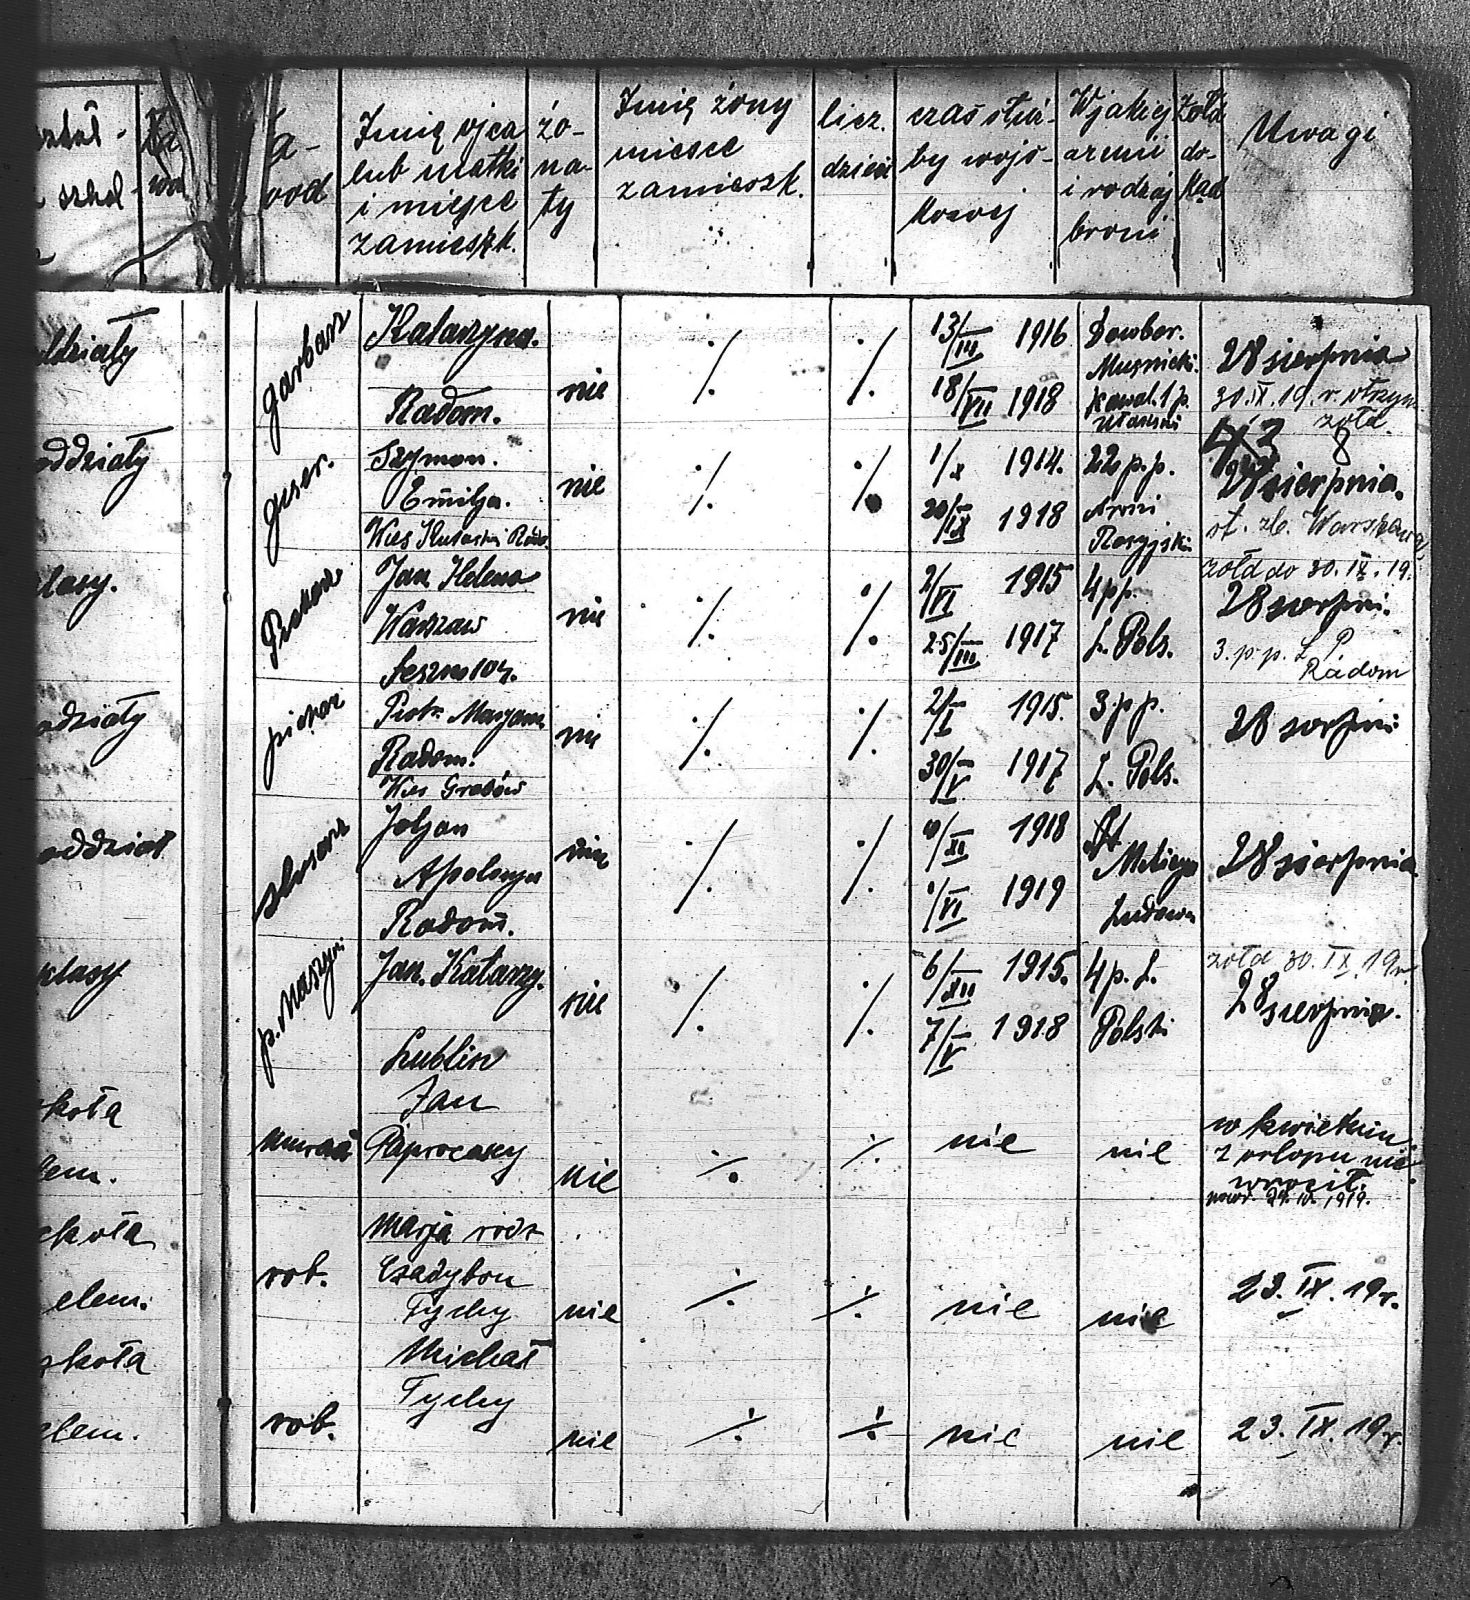 Za-
wod
Imię ojca
lub matki
i miejsce
zamieszk.
żo-
na-
ty
Imię żony
miesce
zamieszk.
licz.
dzieci
czas służ-
by wojs-
kowej
W jakiej
armii
i rodzaj
broni
Żołd
do-
kąd
Uwagi
oddziały
garbarz
Katarzyna.
Radom.
nie
./.
./.
13/III 1916
18/VII 1918
Dowbor.
Muśnicki.
kawal. 1 p.
28 sierpnia
30.IX.19.r. otrzym
żołd.
43 8
oddziały
Szymon.
Emilja.
nie
./.
./.
1/X 1914.
20/IX 1918
22 p.p.
Armi
Rosyjski
28 sierpnia.
st. zb. Warszawa
klasy.
Jan Helena
Warszaw
Leszno 104.
nie
./.
./.
2/VI 1915
25/III 1917
4 p.p.
L. Pols.
żołd do 30.IX.19.
28 sierpni.
3. p. p. L P.
Radom
oddziały
piekarz
Piotr. Maryanna
Radom.
Wieś Grabów
nie
./.
./.
2/I 1915.
30/V 1917
3 p.p.
L. Pols.
28 sierpni
oddział
ślusarz
Radom.
nie
./.
./.
/XI 1918
1/VI 1919
Milicya
Ludowa
28 sierpnia
klasy
Jan. Katarzy.
Lublin
nie
./.
./.
6/XII 1915.
7/V 1918
4 p. L.
Polski
żołd 30.IX.19r
28 sierpnia.
szkoła
elem.
Jan
Paprocany
nie
./.
./.
nie
nie
w kwietniu
z urlopu nie
wrócił.
szkoła
elem.
rob.
Marja
Tychy
nie
./.
./.
nie
nie
23. IX. 19r.
szkoła
elem.
rob.
Michał
Tychy
nie
./.
./.
nie
nie
23. IX. 19r.